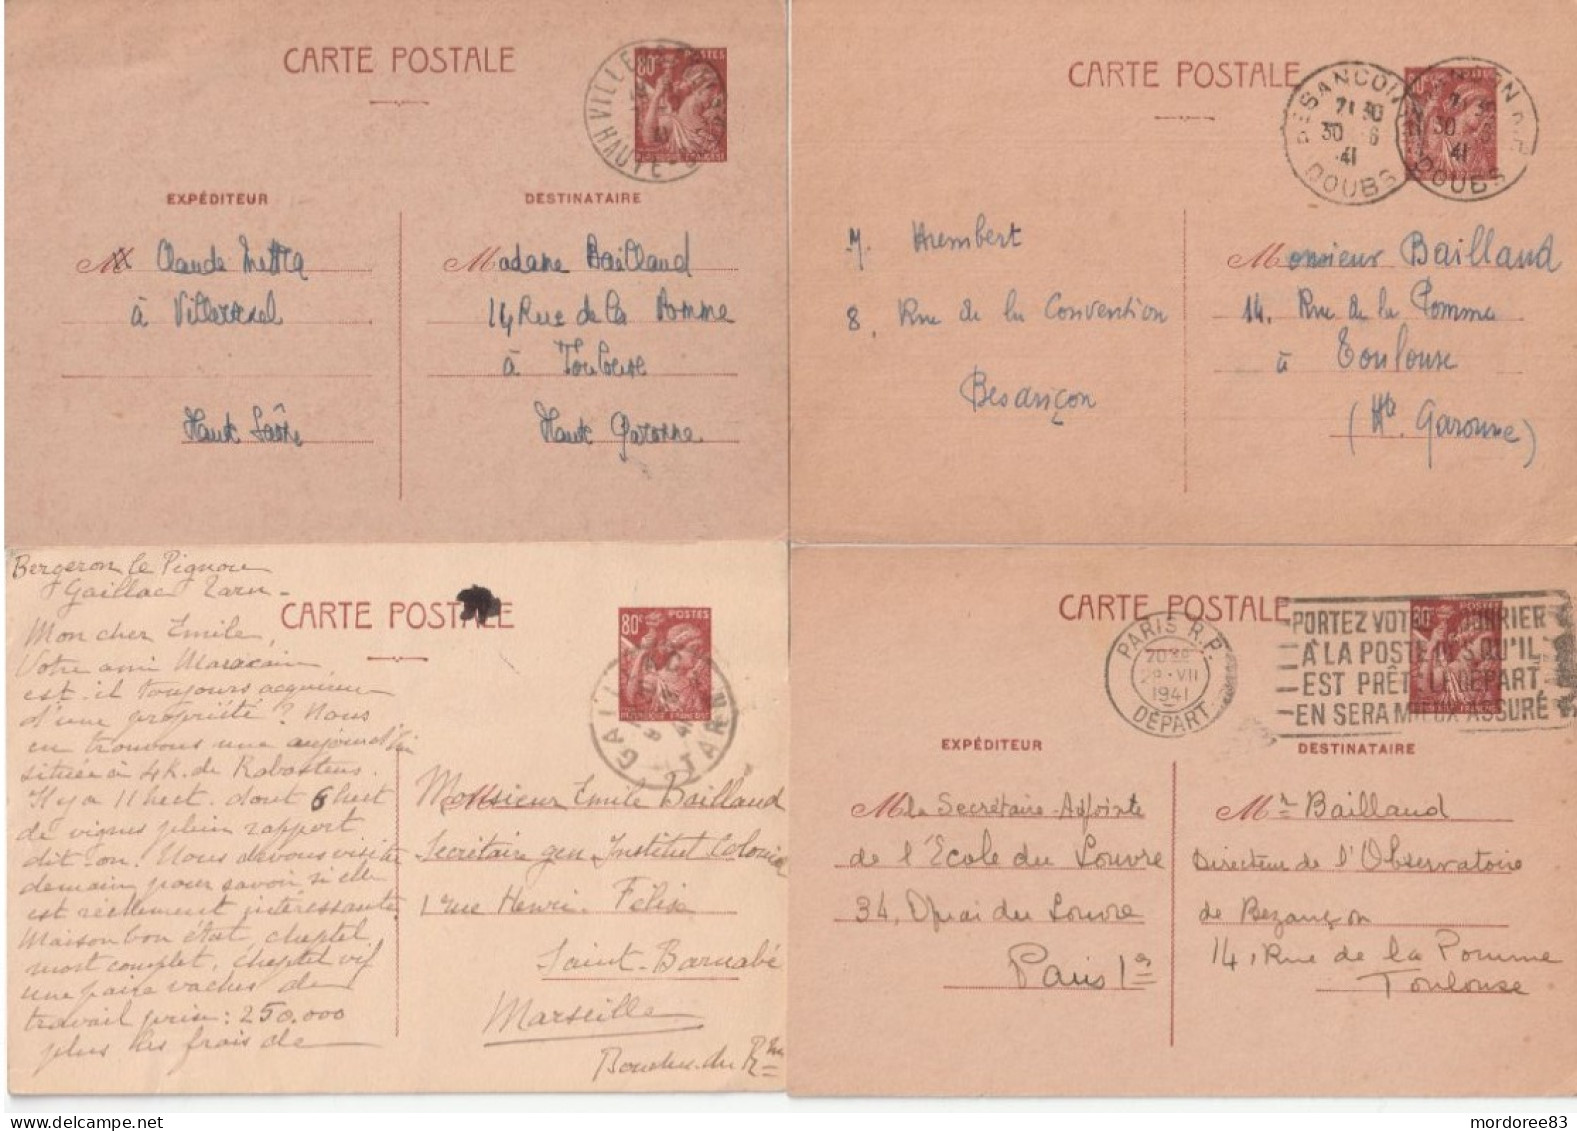 CARTE POSTALE
80c POSTES
EXPÉDITEUR
M Claude Mettra
à Villersexel
Haute Saône
DESTINATAIRE
Madame Baillaud
14 Rue de la Pomme
à Toulouse
Haute Garonne
CARTE POSTALE
BESANCON
7H 30
30 6
41
DOUBS
BESANCON R.P.
7H 30
30 6
41
DOUBS
M. Humbert
8, Rue de la Convention
Besançon
Monsieur Baillaud
14. Rue de la Pomme
à Toulouse
(Hte Garonne)
Bergeron le Pignou
Gaillac Tarn-
Mon cher Emile,
Votre ami Maracain
est-il toujours acquéreur
d'une propriété? Nous
en trouvons une aujourd'hui
située à 4k. de Rabastens.
Il y a 11 hect. dont 6 hect
de vignes plein rapport
dit-on. Nous devons visiter
demain pour savoir si elle
est réellement intéressante.
Maison bon état, cheptel
mort complet, cheptel vif
une paire vaches de
travail prix: 250.000
plus les frais de
CARTE POSTALE
80c POSTES
GAILLAC
TARN
Monsieur Emile Baillaud
Secrétaire gen Institut Colonial
1 rue Henri Félix
Saint-Barnabé
Marseille
Bouches-du-Rh
CARTE POSTALE
PARIS R.P.
20H
29·VII
1941
DÉPART
PORTEZ VOTRE COURRIER
A LA POSTE DES QU'IL
EST PRÊT: LE DÉPART
EN SERA MIEUX ASSURÉ
EXPÉDITEUR
M la Secrétaire-Adjointe
de l'École du Louvre
34, Quai du Louvre
Paris 1er
DESTINATAIRE
Mr Baillaud
Directeur de l'Observatoire
de Bezançon
14, Rue de la Pomme
Toulouse
www.delcampe.net
mordoree83